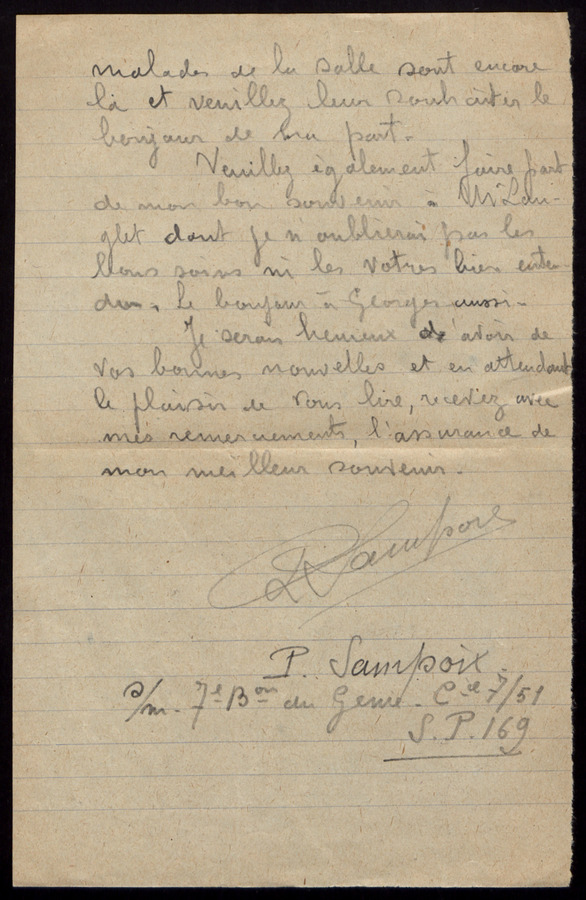 malades de la salle sont encore
là et veuillez leur souhaiter le
bonjour de ma part.
Veuillez également faire part
de mon bon souvenir à Mr Lau-
glet dont je n'oublierai pas les
bons soins ni les votres bien enten-
du. Le bonjour à Georges aussi.
Je serais heureux d'avoir de
vos bonnes nouvelles et en attendant
le plaisir de vous lire, recevez avec
mes remerciements, l'assurance de
mon meilleur souvenir.
P. Sampoix
P. Sampoix.
s/m. 7e Bon du Génie. Cie 7/51
S.P. 169